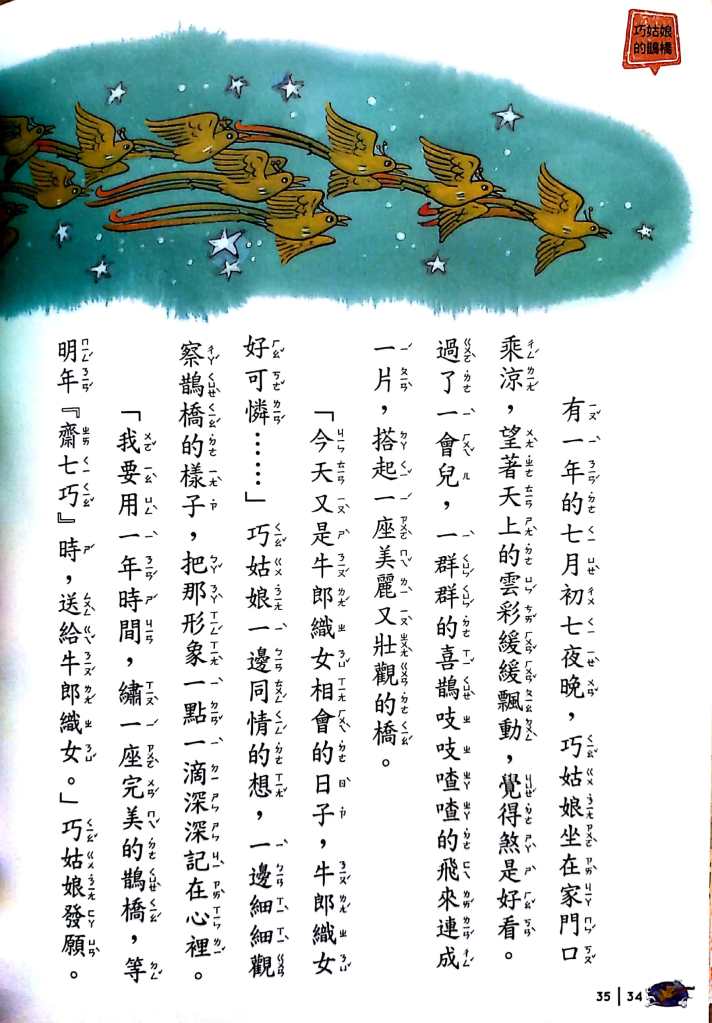 巧姑娘
的鵲橋
有一年的七月初七夜晚，巧姑娘坐在家門口
乘涼，望著天上的雲彩緩緩飄動，覺得煞是好看。
過了一會兒，一群群的喜鵲吱吱喳喳的飛來連成
一片，搭起一座美麗又壯觀的橋。
「今天又是牛郎織女相會的日子，牛郎織女
好可憐……」巧姑娘一邊同情的想，一邊細細觀
察鵲橋的樣子，把那形象一點一滴深深記在心裡。
「我要用一年時間，繡一座完美的鵲橋，等
明年『齋七巧』時，送給牛郎織女。」巧姑娘發願。
35 | 34